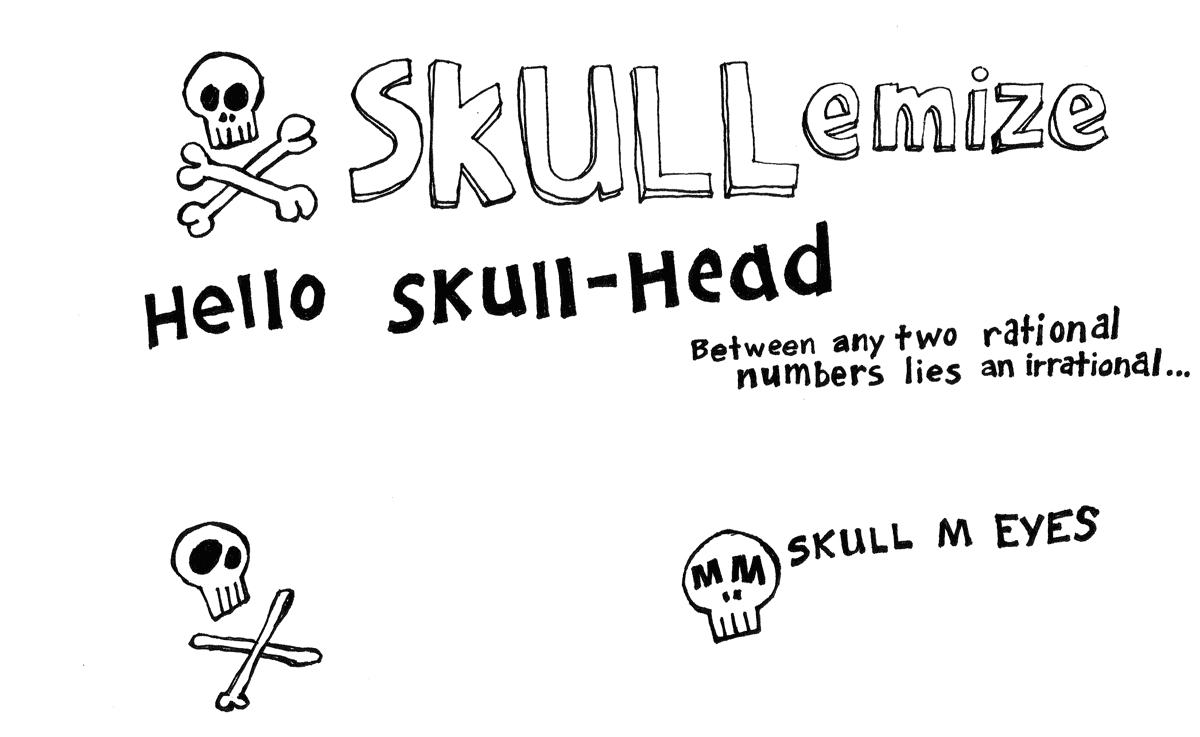 SKULLemize
Hello SKull-Head
Between any two rational
numbers lies an irrational...
MM
SKULL M EYES